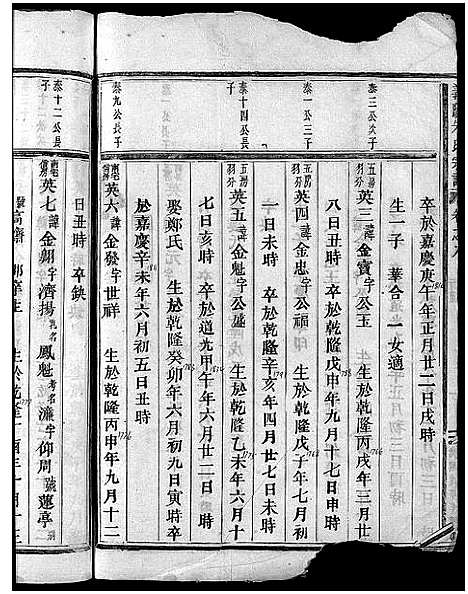 卒於嘉慶庚午年正月廿二日戌時
生一子 華合 一女適
泰三公次子
英三 諱金寶字公玉 生於乾隆丙戌年三月廿
八日丑時 卒於乾隆戊申年九月十七日申時
泰一公三子
英四 諱金忠字公福 生於乾隆戊子年七月初
一日未時 卒於乾隆辛亥年四月廿七日未時
泰十四公長子
英五 諱金魁字公盛 生於乾隆乙未年六月十
七日亥時 卒於道光甲午年六月廿二日 時
娶鄭氏 生於乾隆癸卯年六月初九日寅時卒
於嘉慶辛未年六月初五日丑時
泰九公長子
英六 諱金發字世祥 生於乾隆丙申年九月十二
日丑時 卒缺
泰十二公長子
英七 諱金朝字濟揚 乳名鳳魁考名濂字仰周號蓮亭